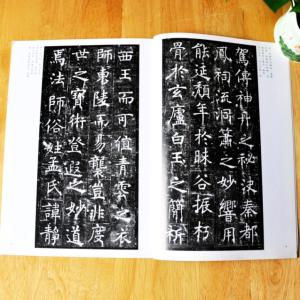 駕傳神丹之秘訣秦都
鳳祠流洞簫之妙響用
能延頹年於昧谷振朽
骨於玄廬白玉之簡祈
西王而可值青霓之衣
師東陵而易襲豈非度
世之寶術登遐之妙道
焉法師俗姓孟氏諱靜